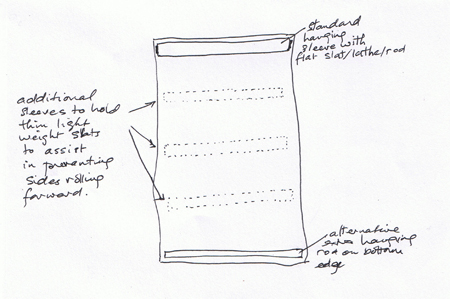 standard
hanging
sleeve with
flat slat/lathe/rod
additional
sleeves to hold
thin light
weight slats
to assist
in preventing
sides rolling
forward.
alternative
extra hanging
rod on bottom
edge